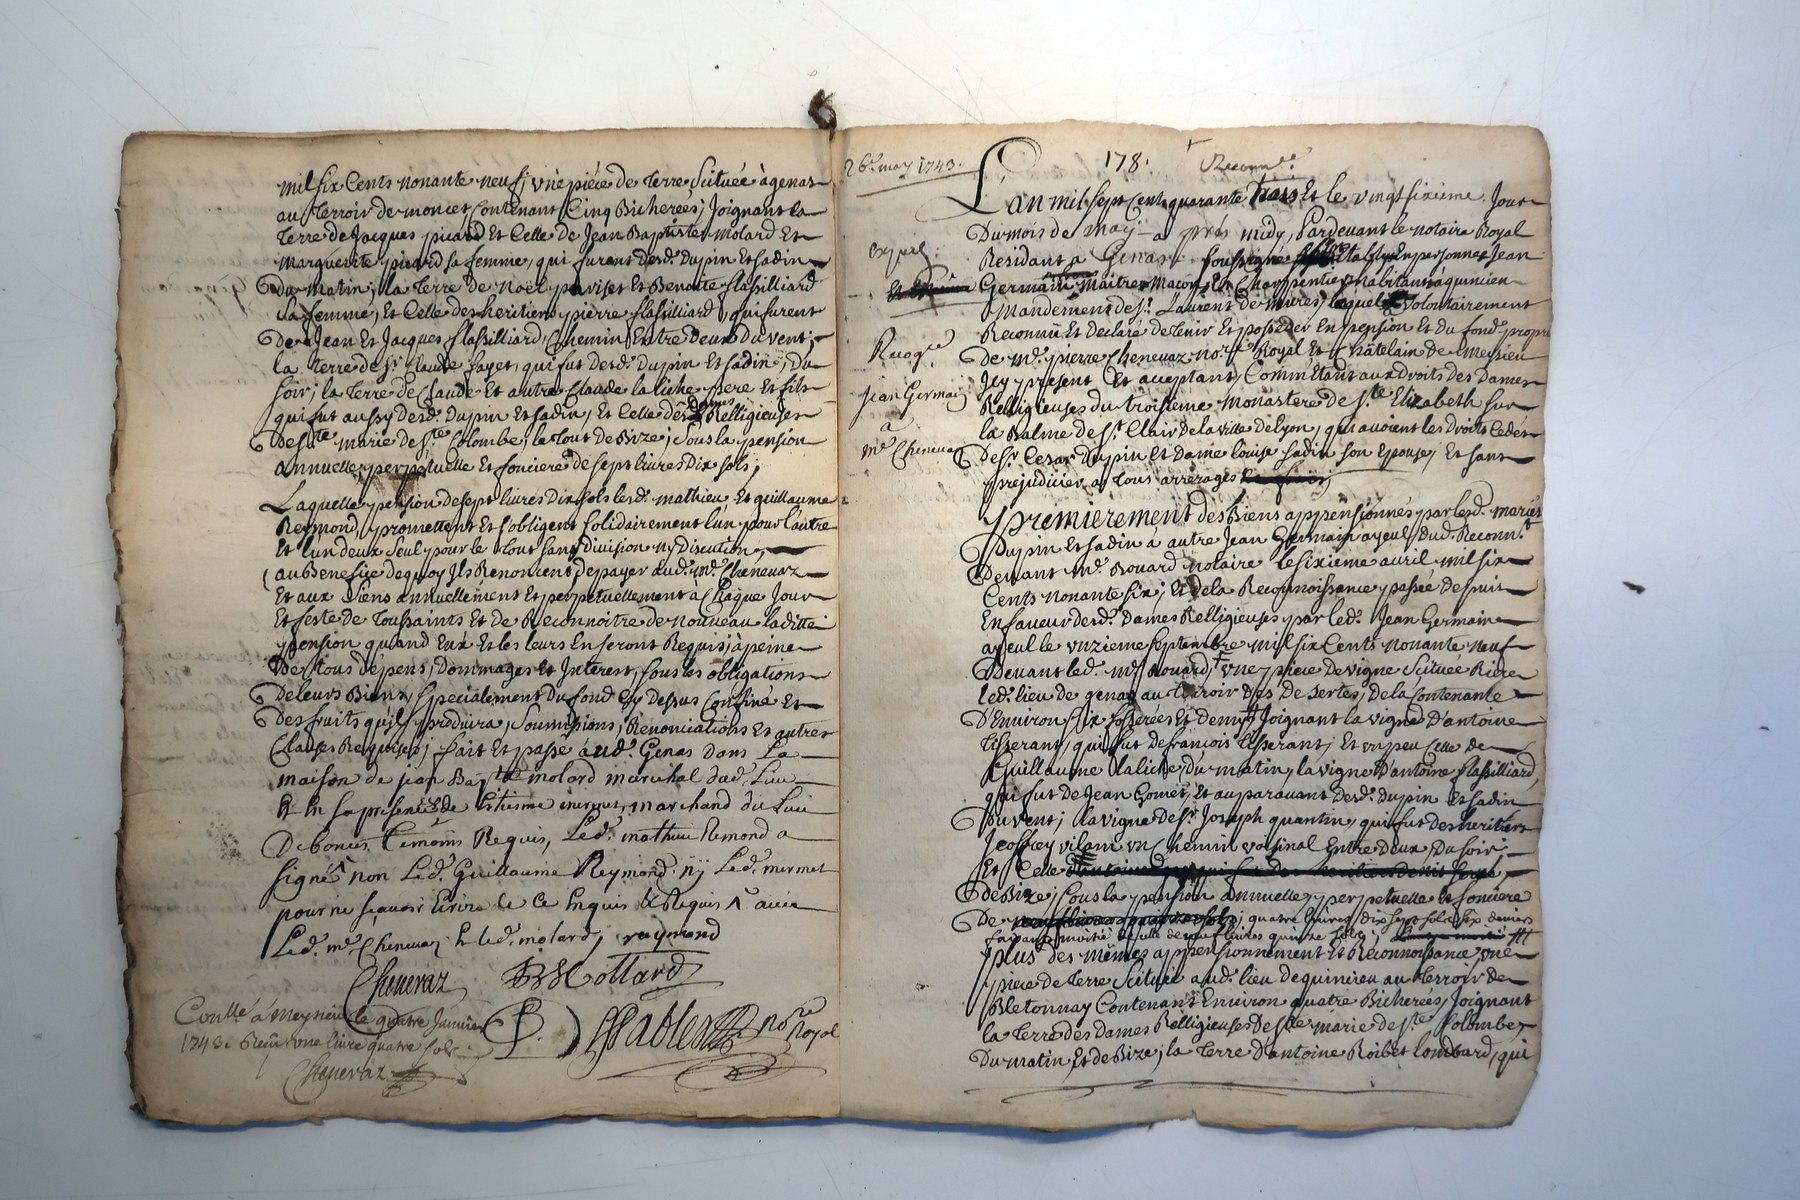 mil six Cents nonante neuf; une piéce de terre scituée à genas
au terroir de moncet Contenant Cinq Bicherées; Joignant la
terre de Jacques picard Et Celle de Jean Baptiste molard Et
marguerite picard sa femme, qui furent desd. Dupin et sadin
Du matin; la terre de Noël pariset Et Benoite flassilliard
sa femme, Et Celle des heritiers pierre flassilliard, qui furent
De Jean Et Jacques flassilliard, Chemin Entre deux Du vent;
la terre de sr. Claude payet, qui fut desd. Dupin et sadin, Du
soir; la terre de Claude Et autre Claude la liche pere Et fils
qui fut aussy desd. Dupin et sadin, Et Celle desd. Dames Relligieuses
de ste marie de ste Colombe, le tout de Bize; sous la pension
annuelle, perpétuelle Et fonciere de sept livres Dix sols;
Laquelle pension de sept livres Dix sols lesd. mathieu Et guillaume
Reymond, promettent Et sobligent solidairement l'un pour l'autre
Et l'un deux seul pour le tout sans division ny Discution,
au Benefice de quoy Ils Renoncent, de payer aud. me. Chenevaz
Et aux siens annuellement Et perpetuellement à Chaque Jour
Et feste de Toussaints Et de Reconnoitre de nouveau laditte
pension quand Eux Et les leurs En seront Requis, à peine
De tous dépens, Dommages Et Interest, sous les obligations
De leurs Biens, specialement Du fond Cy Dessus Confiné Et
Des fruits qu'il produira, soumissions, Renonciations Et autres
Clauses Requises; fait Et passé aud. Genas dans La
maison de jean Bapte molard marechal dud. Lieu
Et En sa presence & de Estienne mermet, marchand du Lieu
De bonces Temoins Requis, Led. mathieu Remond a
signé non Led. Guillaume Reymond ny Led. mermet
pour ne sçavoir Ecrire de Ce Enquis & Requis avec
Led. me Chenevaz & led. molard, raymond
Chenevaz JB Mollard
Conllé à Meysieu le quatre Janvier
1743. Reçu une livre quatre sols
Chenevaz
P. nore Royal
26e. may 1743.
178.
Reconnce.
L'an mil sept Cent quarante trois Et le vingt sixieme Jour
Du mois de may a prés midy, Pardevant le notaire Royal
Residant a Genas soussigné Etably En personne Jean
Germain Maitre Maçon Et Charpentier habitant à quincieu
Mandement de st. Laurent de mures, lequel volontairement
Reconnu Et declaré de tenir Et posseder En pension Et du fond propre
De me. pierre Chenevaz nore. Royal Et Châtelain de Meysieu
Icy present Et acceptant, Comm'Etant aux Droits Des Dames
Relligieuses du troisieme monastere de ste Elizabeth sur
la Balme de st. Clair de la ville de Lyon, qui avoient les Droits Cedés
De sr. Cesar Dupin Et Dame louise sadin son Epouse, Et sans
prejudicier a tous arrérages
Expd.
Recoge.
Jean Germain
a
me Chenevaz
Premierement des Biens appensionnés par lesd. mariés
Dupin Et sadin à autre Jean Germain ayeul dud. Reconnt.
Devant me. Bouard notaire le sixieme avril mil six
Cents nonante six; Et de la Reconnoissance passée depuis
En faveur desd. Dames Relligieuses par led. Jean Germain
ayeul le unzieme septembre mil six Cents nonante neuf
Devant led. me. Bouard, une piéce de vigne scituée Riere
led. lieu de genas au terroir Des De sertes, de la Contenante
D'Environ six fosserées Et demy, Joignant la vigne d'antoine
Tisserant, qui fut de françois Tisserant; Et un peu Celle de
Guillaume laliche, Du matin, la vigne d'antoine flassilliard,
qui fut de Jean Gomet, Et auparavant desd. Dupin Et sadin
Du vent; la vigne de sr. Joseph quantin, qui fut des heritiers
Jeoffrey vilain un Chemin voisinal Entre Deux, Du soir
Et Celle
De Bize; sous la pension annuelle, perpetuelle & fonciere
De quatre livres, dix sept sols six deniers
faisant moitié de celle de neuf livres quinze sols;
plus des mêmes appensionnement Et Reconnoissance, une
piéce de terre scituée aud. lieu de quincieu au terroir de
Bletonnay Contenant Environ quatre Bicherées, Joignant
la terre des Dames Relligieuses de ste marie de ste Colombe,
Du matin, Et de Bize; la terre d'antoine Roibet lombard, qui